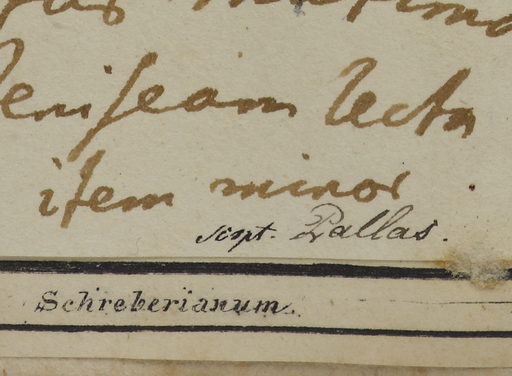 Jeniseam lecta
item minor
scrpt. Pallas.
Schreberianum.